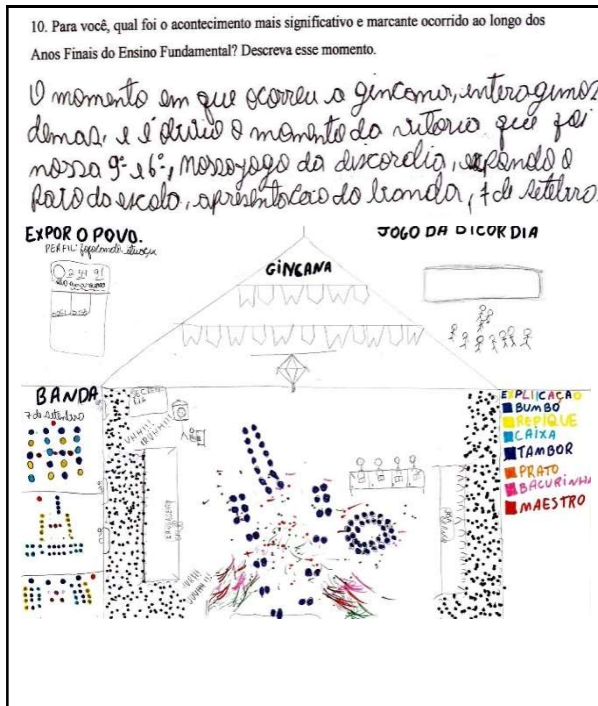 10. Para você, qual foi o acontecimento mais significativo e marcante ocorrido ao longo dos
Anos Finais do Ensino Fundamental? Descreva esse momento.
O momento em que ocorreu a gincana, interagimos
demas, e é óbvio o momento da vitoria que foi
nossa 9° e 6°, nosso jogo da discordia, expondo o
Povo da escola, apresentacao da banda, 7 de setembro.
EXPOR O POVO.
PERFIL:
JOGO DA DICORDIA
GINCANA
BANDA
7 de setembro
UHH!!!
EXPLIICAÇAO
BUMBO
REPIQUE
CAIXA
TAMBOR
PRATO
BACURINHA
MAESTRO